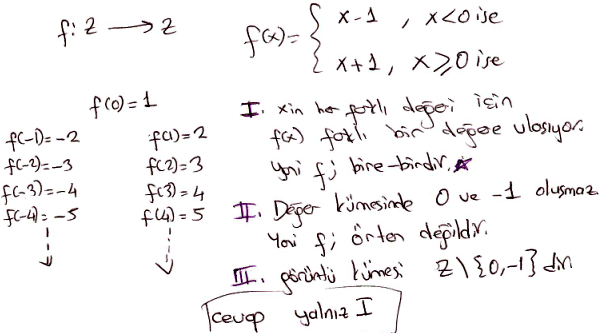 f: Z → Z
f(x) = { x-1 , x<0 ise
x+1 , x⩾0 ise
f(0)=1
f(-1)=-2 f(1)=2
f(-2)=-3 f(2)=3
f(-3)=-4 f(3)=4
f(-4)=-5 f(4)=5
I. x in her farklı değeri için
f(x) farklı bir değere ulaşıyor.
Yani f; bire-birdir.
II. Değer kümesinde 0 ve -1 oluşmaz.
Yani f; örten değildir.
III. görüntü kümesi Z\{0,-1} dir.
cevap yalnız I